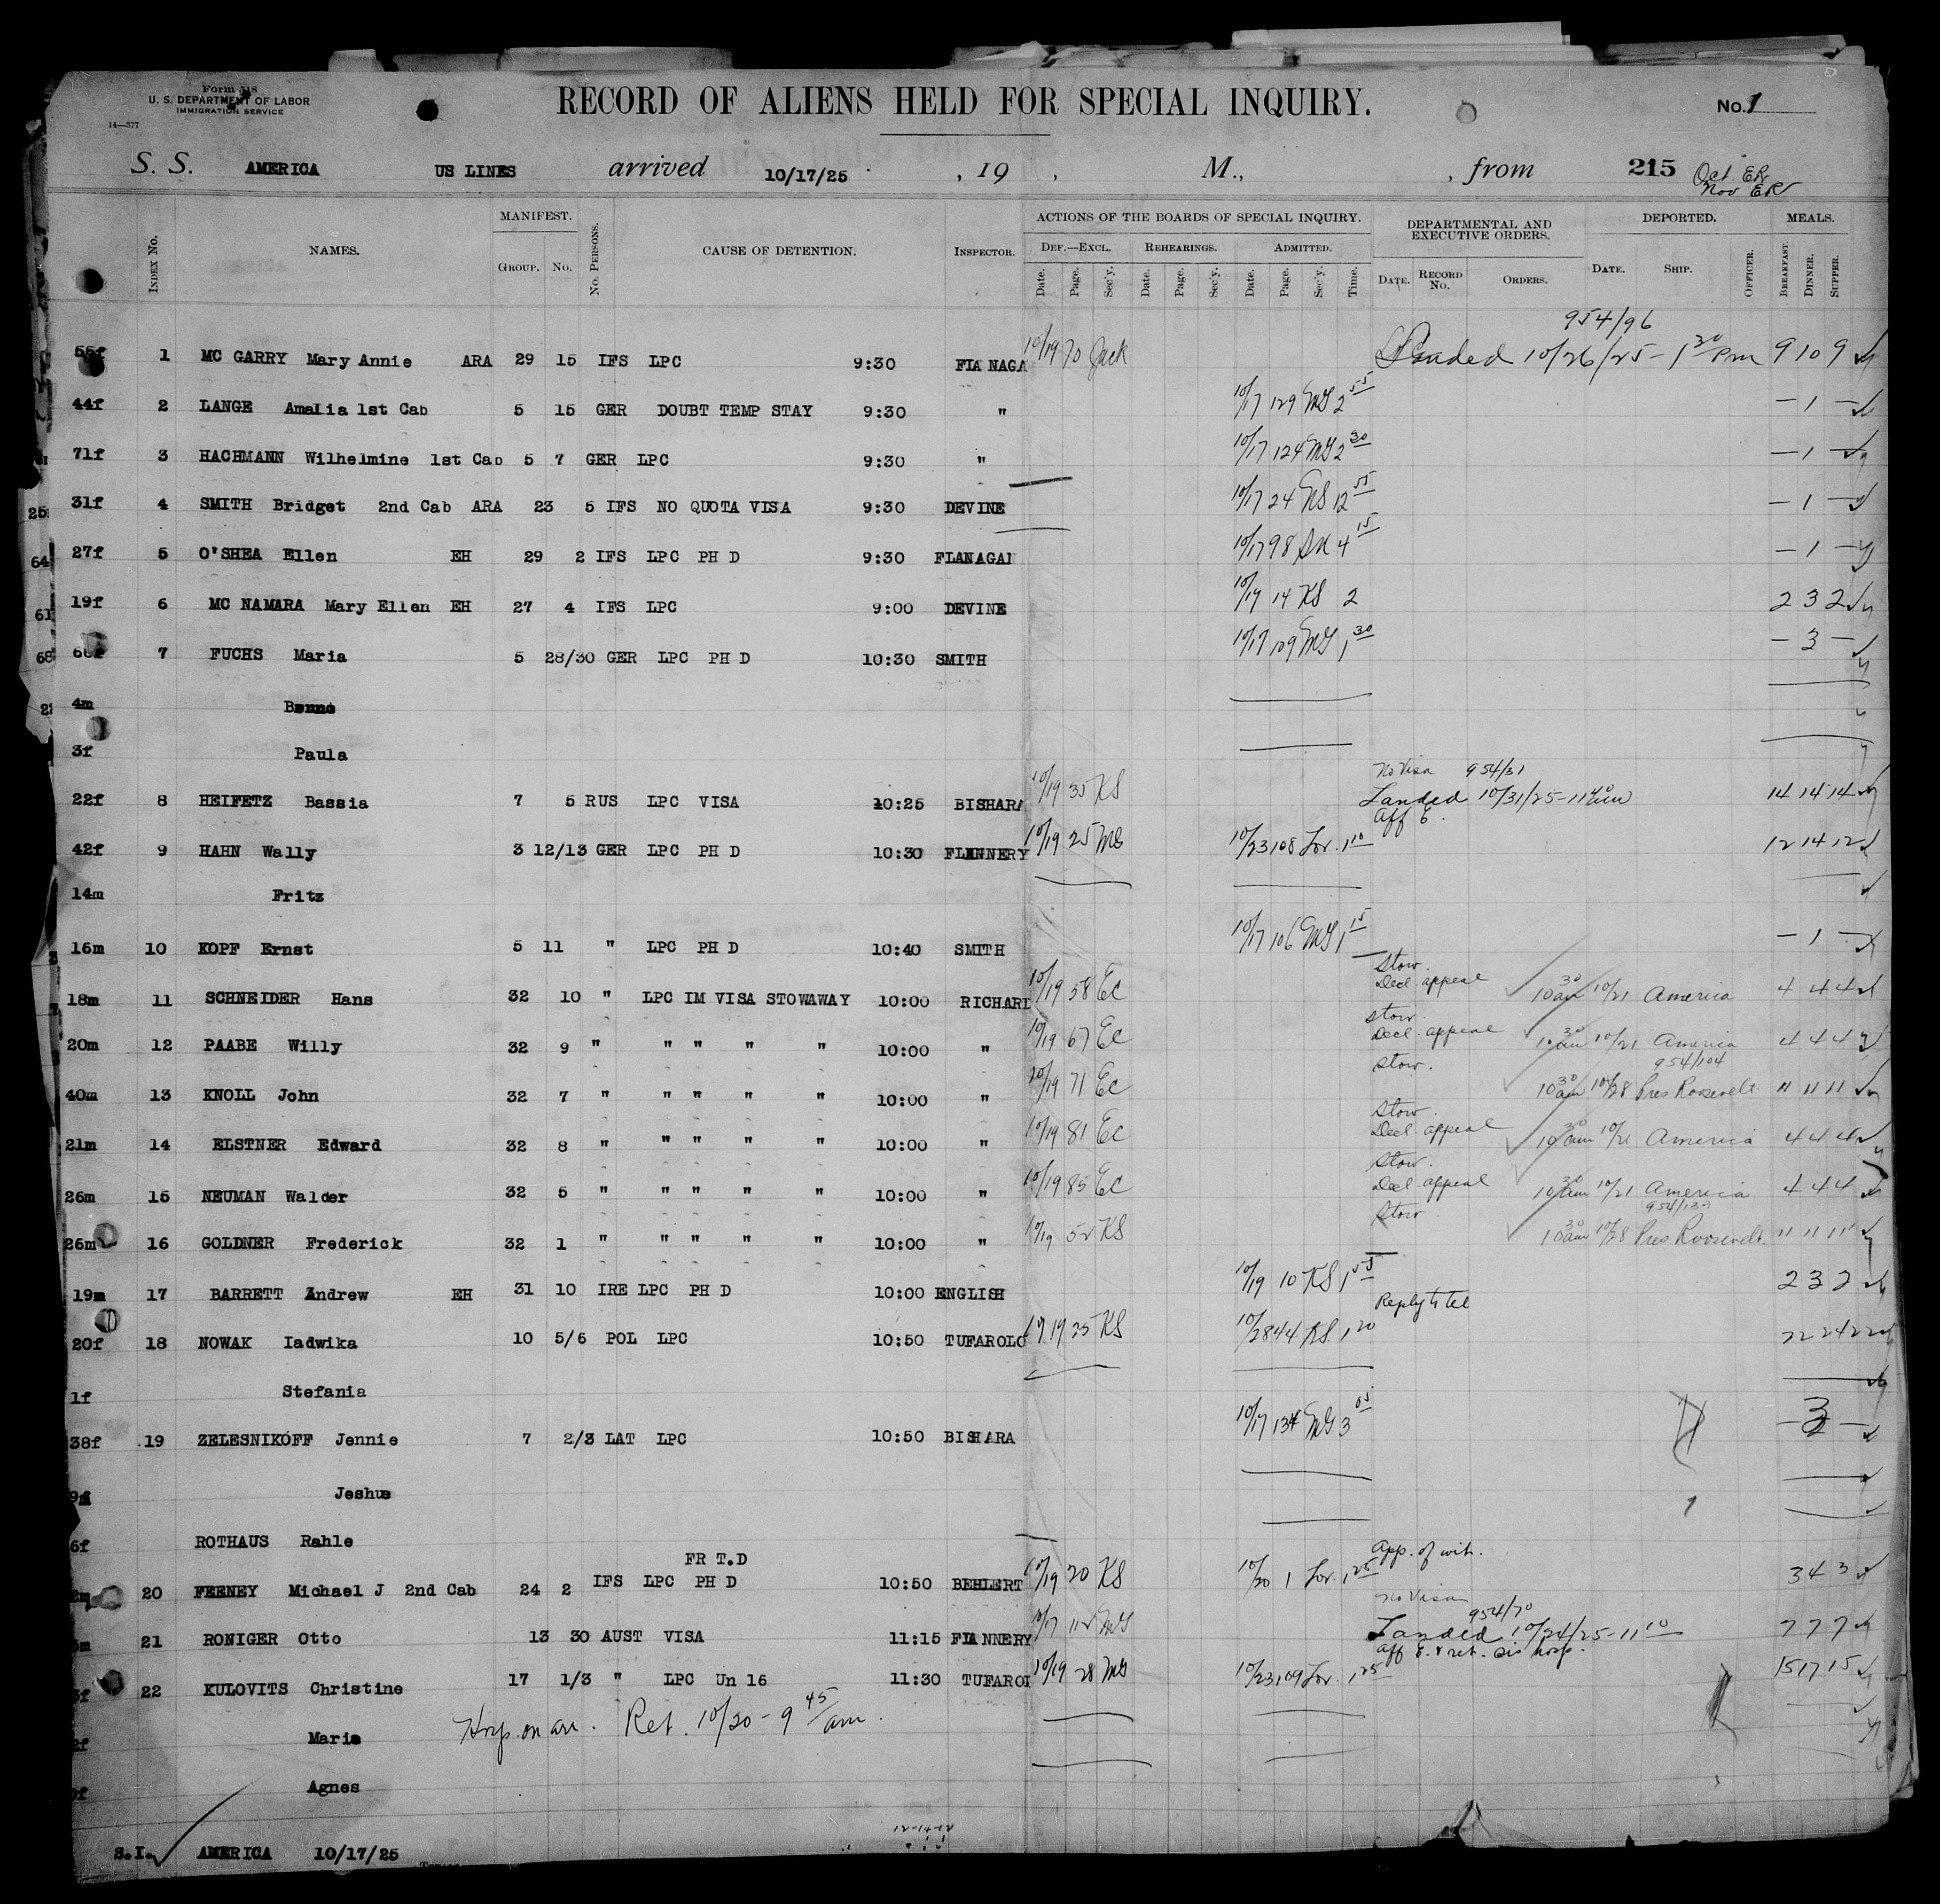 Form 518
U. S. DEPARTMENT OF LABOR
IMMIGRATION SERVICE
14—377
RECORD OF ALIENS HELD FOR SPECIAL INQUIRY.
No. 1
S. S. AMERICA US LINES arrived 10/17/25 , 19 , M., , from 215 Oct. ER
Nov ER
Index No. NAMES. MANIFEST. Group. No. No. Persons. CAUSE OF DETENTION. Inspector. ACTIONS OF THE BOARDS OF SPECIAL INQUIRY. DEPARTMENTAL AND EXECUTIVE ORDERS. DEPORTED. MEALS.
Def.—Excl. Rehearings. Admitted.
Date. Page. Sec'y. Date. Page. Sec'y. Date. Page. Sec'y. Time. Date. Record No. Orders. Date. Ship. Officer. Breakfast. Dinner. Supper.
954/96
55f 1 MC GARRY Mary Annie ARA 29 15 IFS LPC 9:30 FLANAGA 10/19 70 Jack Landed 10/26/25 - 1 30 Pm 9 10 9
44f 2 LANGE Amalia 1st Cab 5 15 GER DOUBT TEMP STAY 9:30 " 10/17 129 MG 2 55 — 1 —
71f 3 HACHMANN Wilhelmine 1st Cab 5 7 GER LPC 9:30 " 10/17 124 MG 2 30 — 1 —
31f 4 SMITH Bridget 2nd Cab ARA 23 5 IFS NO QUOTA VISA 9:30 DEVINE 10/17 24 12 55 — 1 —
27f 5 O'SHEA Ellen EH 29 2 IFS LPC PH D 9:30 FLANAGAN 10/17 98 4 15 — 1 —
19f 6 MC NAMARA Mary Ellen EH 27 4 IFS LPC 9:00 DEVINE 10/19 14 KS 2 2 3 2
7 FUCHS Maria 5 28/30 GER LPC PH D 10:30 SMITH 10/17 109 MG 1 30 — 3 —
4m Bruno
3f Paula
No Visa 954/31
22f 8 HEIFETZ Bassia 7 5 RUS LPC VISA 10:25 BISHARA 10/19 35 KS Landed 10/31/25 - 11 40 am 14 14 14
Aff E.
42f 9 HAHN Wally 3 12/13 GER LPC PH D 10:30 FLANNERY 10/19 25 MG 10/23 108 Lor. 1 10 12 14 12
14m Fritz
16m 10 KOPF Ernst 5 11 " LPC PH D 10:40 SMITH 10/17 106 MG 1 15 — 1 —
Stow.
18m 11 SCHNEIDER Hans 32 10 " LPC IM VISA STOWAWAY 10:00 RICHARD 10/19 58 EC Decl. appeal 10 30 am 10/21 America 4 4 4
Stow.
20m 12 PAABE Willy 32 9 " " " " " 10:00 " 10/19 67 EC Decl. appeal 10 30 am 10/21 America 4 4 4
Stow. 954/104
40m 13 KNOLL John 32 7 " " " " " 10:00 " 10/19 71 EC 10 30 am 10/28 Pres Roosevelt 11 11 11
Stow.
21m 14 ELSTNER Edward 32 8 " " " " " 10:00 " 10/19 81 EC Decl. appeal 10 30 am 10/21 America 4 4 4
Stow.
26m 15 NEUMAN Walder 32 5 " " " " " 10:00 " 10/19 85 EC Decl. appeal 10 30 am 10/21 America 4 4 4
Stow
26m 16 GOLDNER Frederick 32 1 " " " " " 10:00 " 10/19 52 KS 10 30 am 10/28 Pres Roosevelt. 11 11 11
19m 17 BARRETT Andrew EH 31 10 IRE LPC PH D 10:00 ENGLISH 10/19 10 KS 1 55 2 3 2
Reply to tel
20f 18 NOWAK Iadwika 10 5/6 POL LPC 10:50 TUFAROLO 10/19 25 KS 10/28 44 KS. 1 20 22 24 22
1f Stefania
38f 19 ZELESNIKOFF Jennie 7 2/3 LAT LPC 10:50 BISHARA 10/17 134 MG 3 05 — 3 —
Jeshua
6f ROTHAUS Rahle
FR T.D App. of wit.
20 FEENEY Michael J 2nd Cab 24 2 IFS LPC PH D 10:50 BEHLERT 10/19 20 KS 10/20 1 Lor. 1 25 3 4 3
No Visa 954/70
21 RONIGER Otto 13 30 AUST VISA 11:15 FLANNERY 10/17 112 MG Landed 10/24/25 - 11 10 7 7 7
Aff E. & ret. hosp.
22 KULOVITS Christine 17 1/3 " LPC Un 16 11:30 TUFAROL 10/19 28 MG 10/23 109 Lor. 1 25 15 17 15
Hosp. on arr. Ret. 10/20 - 9 45 am.
Marie
Agnes
12-14-12
S.I. AMERICA 10/17/25